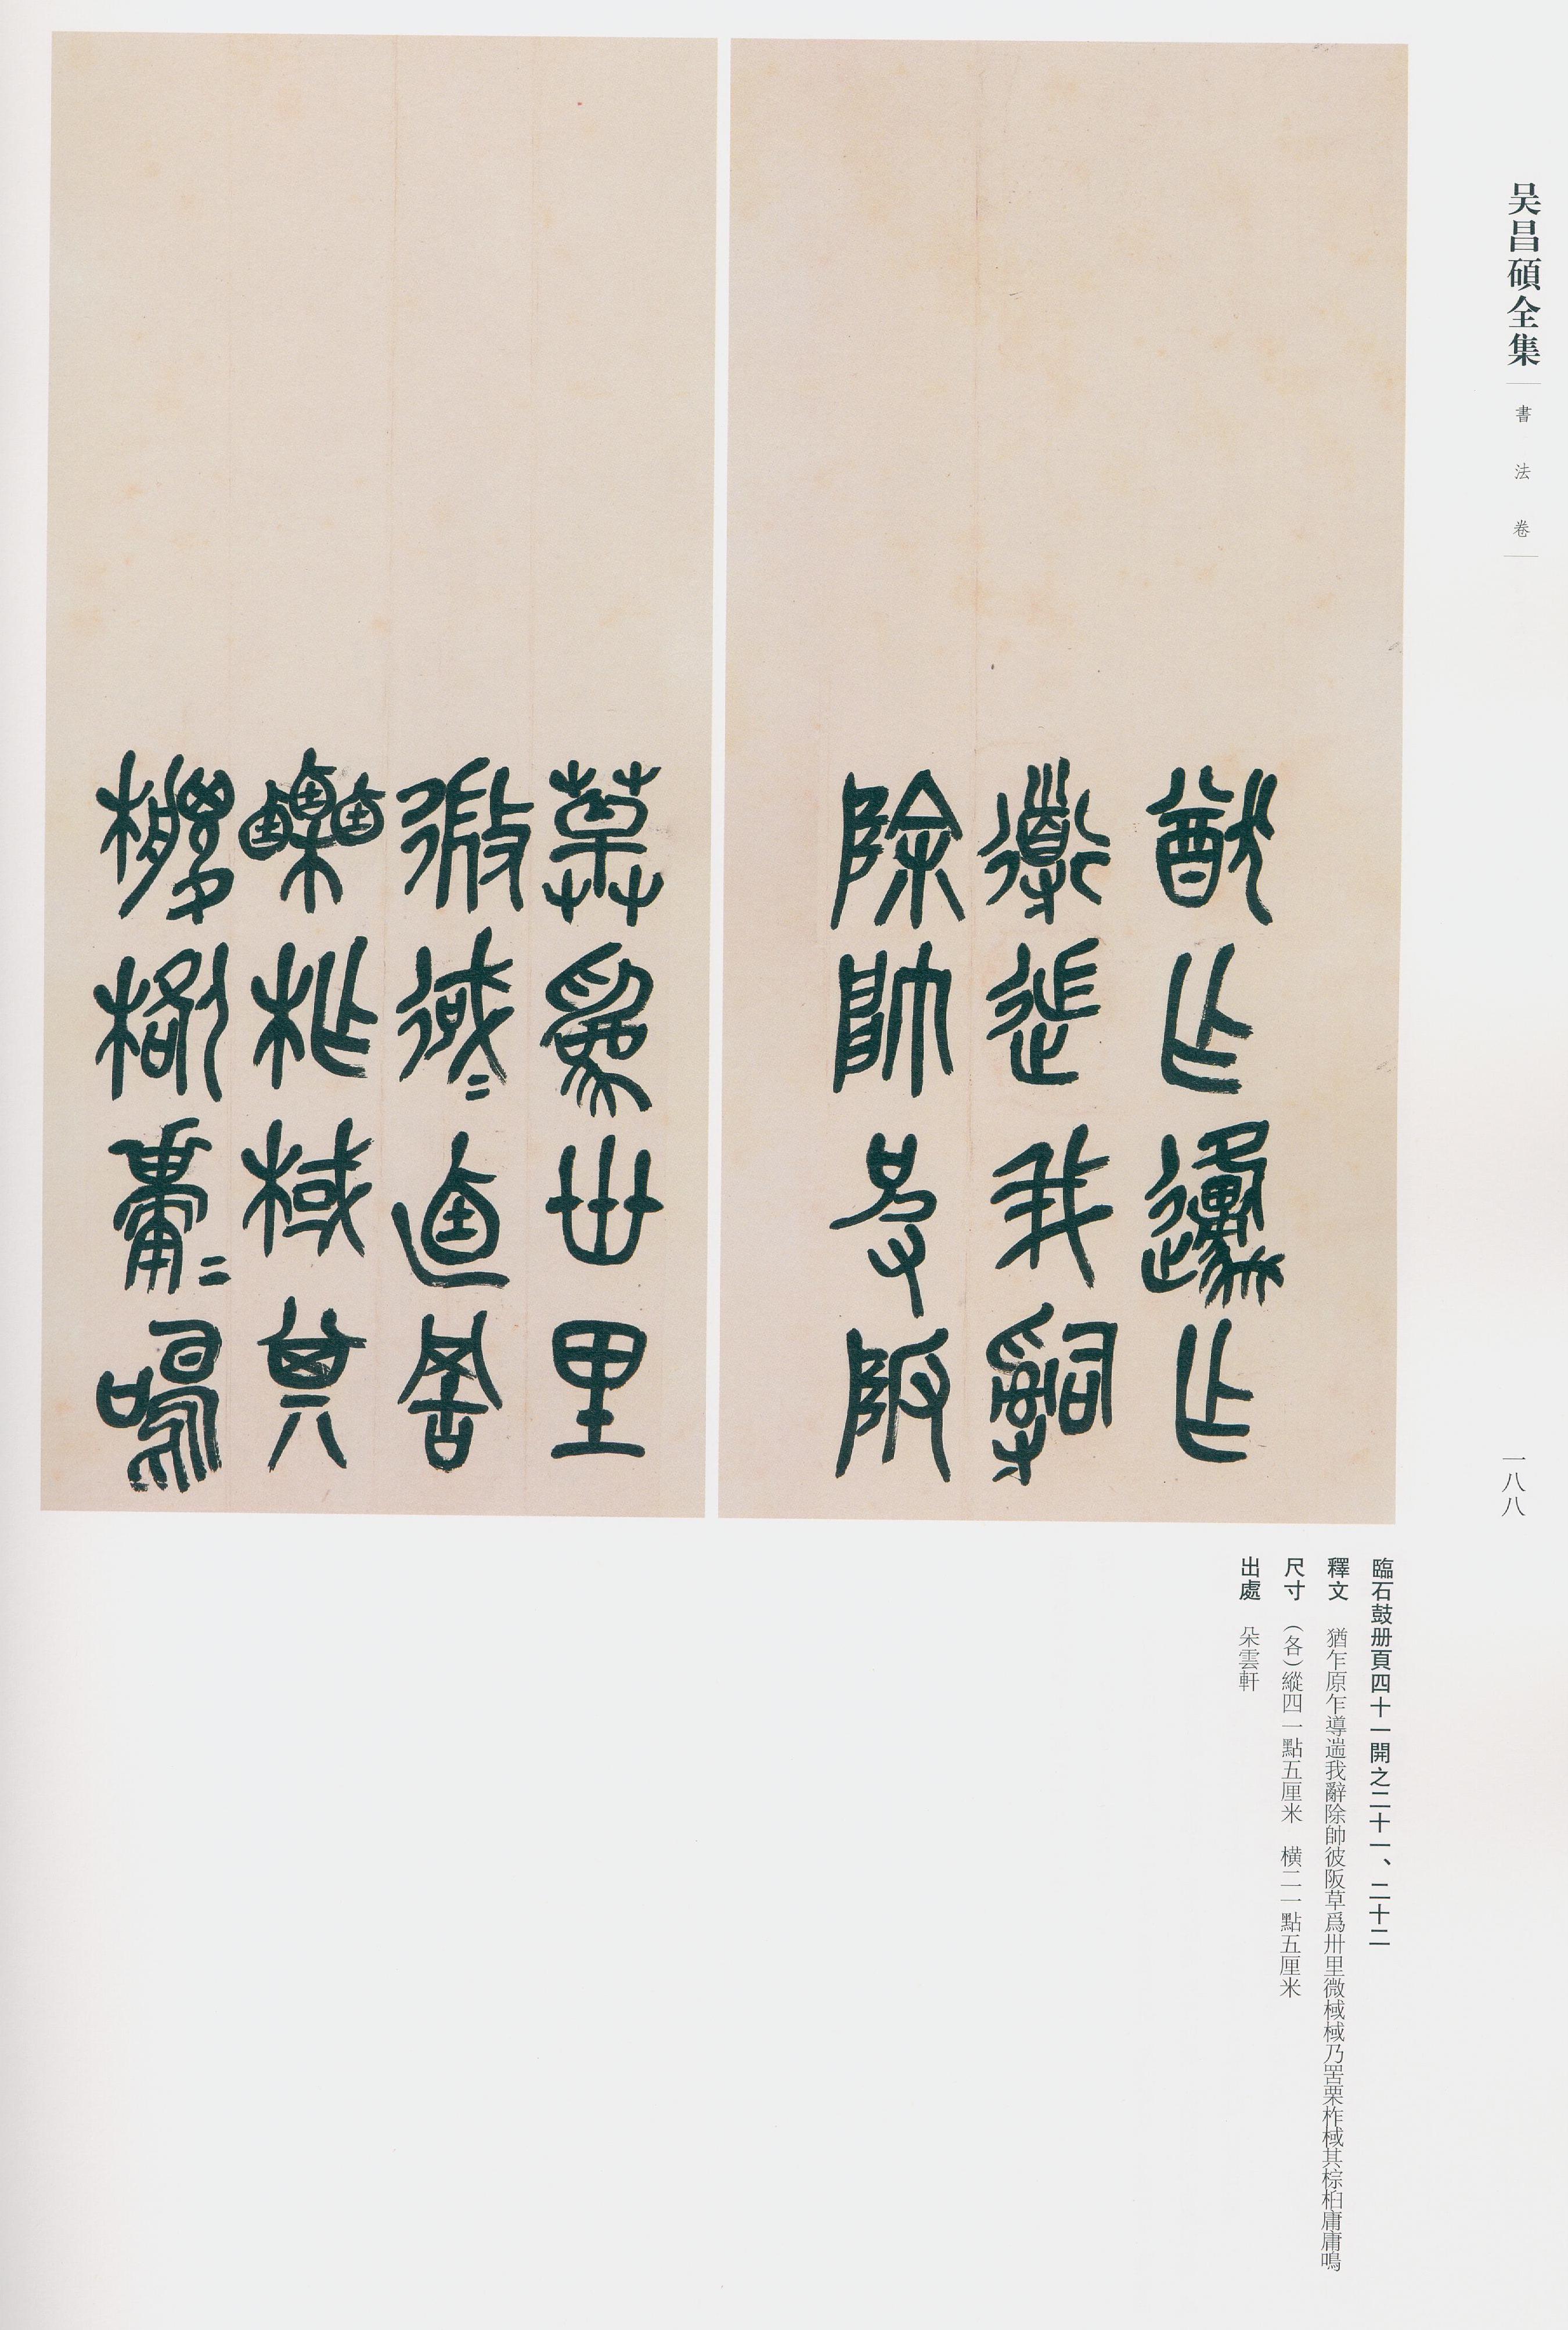 吴昌碩全集
書法卷
一八八
猶乍原乍
導遄我辭
除帥彼阪
草爲卅里
微棫〻乃罟
栗柞棫其
棕楁庸〻鳴
臨石鼓册頁四十一開之二十一、二十二
釋文 猶乍原乍導遄我辭除帥彼阪草爲卅里微棫棫乃罟栗柞棫其棕柏庸庸鳴
尺寸 (各)縱四一點五厘米 橫二一點五厘米
出處 朵雲軒